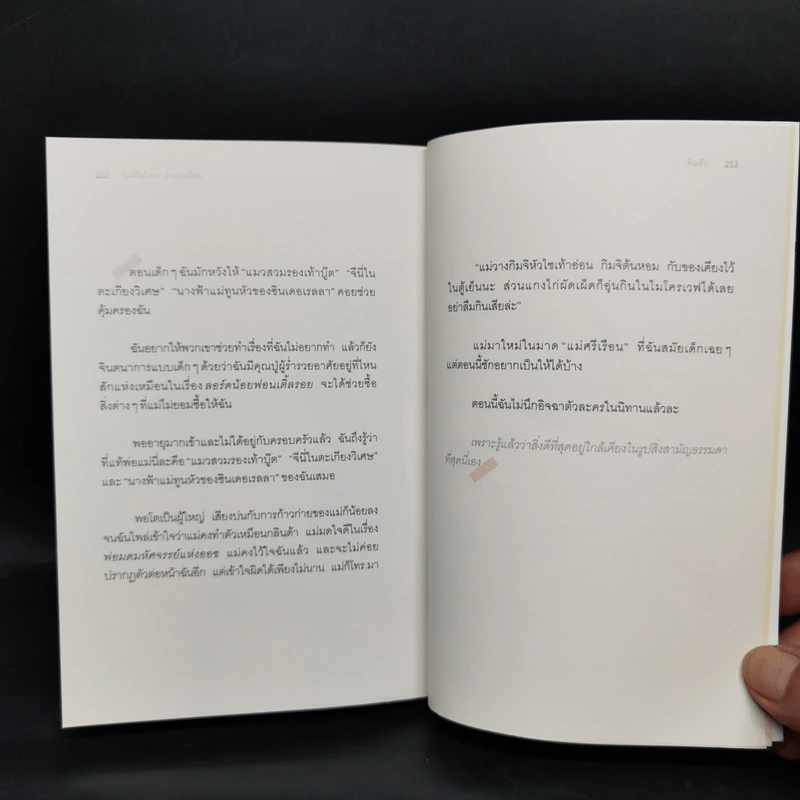 252
ตอนเด็กๆ ฉันมักหวังให้ “แมวสวมรองเท้าบู๊ต” “จีนี่ใน
ตะเกียงวิเศษ” “นางฟ้าแม่ทูนหัวของซินเดอเรลลา” คอยช่วย
คุ้มครองฉัน
ฉันอยากให้พวกเขาช่วยทำเรื่องที่ฉันไม่อยากทำ แล้วก็ยัง
จินตนาการแบบเด็กๆ ด้วยว่าฉันมีคุณปู่ผู้ร่ำรวยอาศัยอยู่ที่ไหน
สักแห่งเหมือนในเรื่อง ลอร์ดน้อยฟอนเติ้ลรอย จะได้ช่วยซื้อ
สิ่งต่างๆ ที่แม่ไม่ยอมซื้อให้ฉัน
พออายุมากเข้าและไม่ได้อยู่กับครอบครัวแล้ว ฉันถึงรู้ว่า
ที่แท้พ่อแม่นี่ละคือ “แมวสวมรองเท้าบู๊ต” “จีนี่ในตะเกียงวิเศษ”
และ “นางฟ้าแม่ทูนหัวของซินเดอเรลลา” ของฉันเสมอ
พอโตเป็นผู้ใหญ่ เสียงบ่นกับการก้าวก่ายของแม่ก็น้อยลง
จนฉันไพล่เข้าใจว่าแม่คงทำตัวเหมือนกลินด้า แม่มดใจดีในเรื่อง
พ่อมดมหัศจรรย์แห่งออซ แม่คงไว้ใจฉันแล้ว และจะไม่ค่อย
ปรากฏตัวต่อหน้าฉันอีก แต่เข้าใจผิดได้เพียงไม่นาน แม่ก็โทร.มา
253
“แม่วางกิมจิหัวไชเท้าอ่อน กิมจิต้นหอม กับของเคียงไว้
ในตู้เย็นนะ ส่วนแกงไก่ผัดเผ็ดก็อุ่นกินในไมโครเวฟได้เลย
อย่าลืมกินเสียล่ะ”
แม่มาใหม่ในมาด “แม่ศรีเรือน” ที่ฉันสมัยเด็กเฉยๆ
แต่ตอนนี้ชักอยากเป็นให้ได้บ้าง
ตอนนี้ฉันไม่นึกอิจฉาตัวละครในนิทานแล้วละ
เพราะรู้แล้วว่าสิ่งดีที่สุดอยู่ใกล้เคียงในรูปสิ่งสามัญธรรมดา
ที่สุดนี่เอง